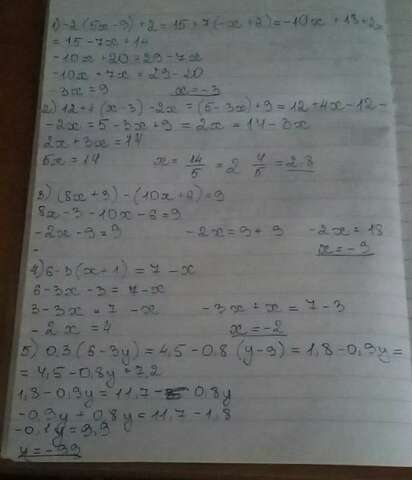 1) -2(5x-9)+2=15+7(-x+2)=-10x+18+2=
=15-7x+14
-10x+20=29-7x
-10x+7x=29-20
-3x=9 x=-3
2) 12+4(x-3)-2x=(5-3x)+9=12+4x-12-
-2x=5-3x+9=2x=14-3x
2x+3x=14
5x=14 x=14/5=2 4/5=2.8
3) (8x+3)-(10x+6)=9
8x-3-10x-6=9
-2x-9=9 -2x=9+9 -2x=18
x=-9
4) 6-3(x+1)=7-x
6-3x-3=7-x
3-3x=7-x -3x+x=7-3
-2x=4 x=-2
5) 0,3(6-3y)=4,5-0,8(y-9)=1,8-0,9y=
=4,5-0,8y+7,2
1,8-0,9y=11,7-0,8y
-0,9y+0,8y=11,7-1,8
-0,1y=9,9
y=-99